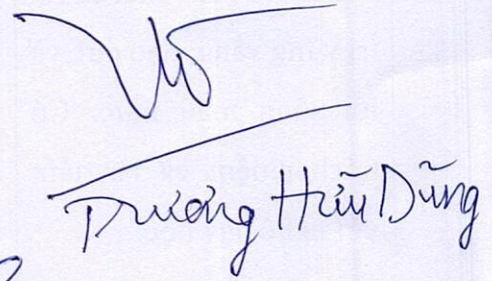 Trương Hữu Dũng